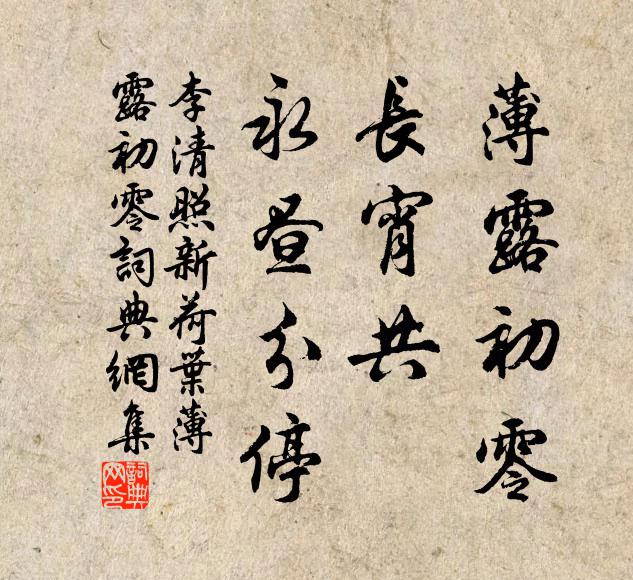 薄露初零
長宵共
永晝分停
李清照新荷葉薄
露初零詞典網集
詞典
网印